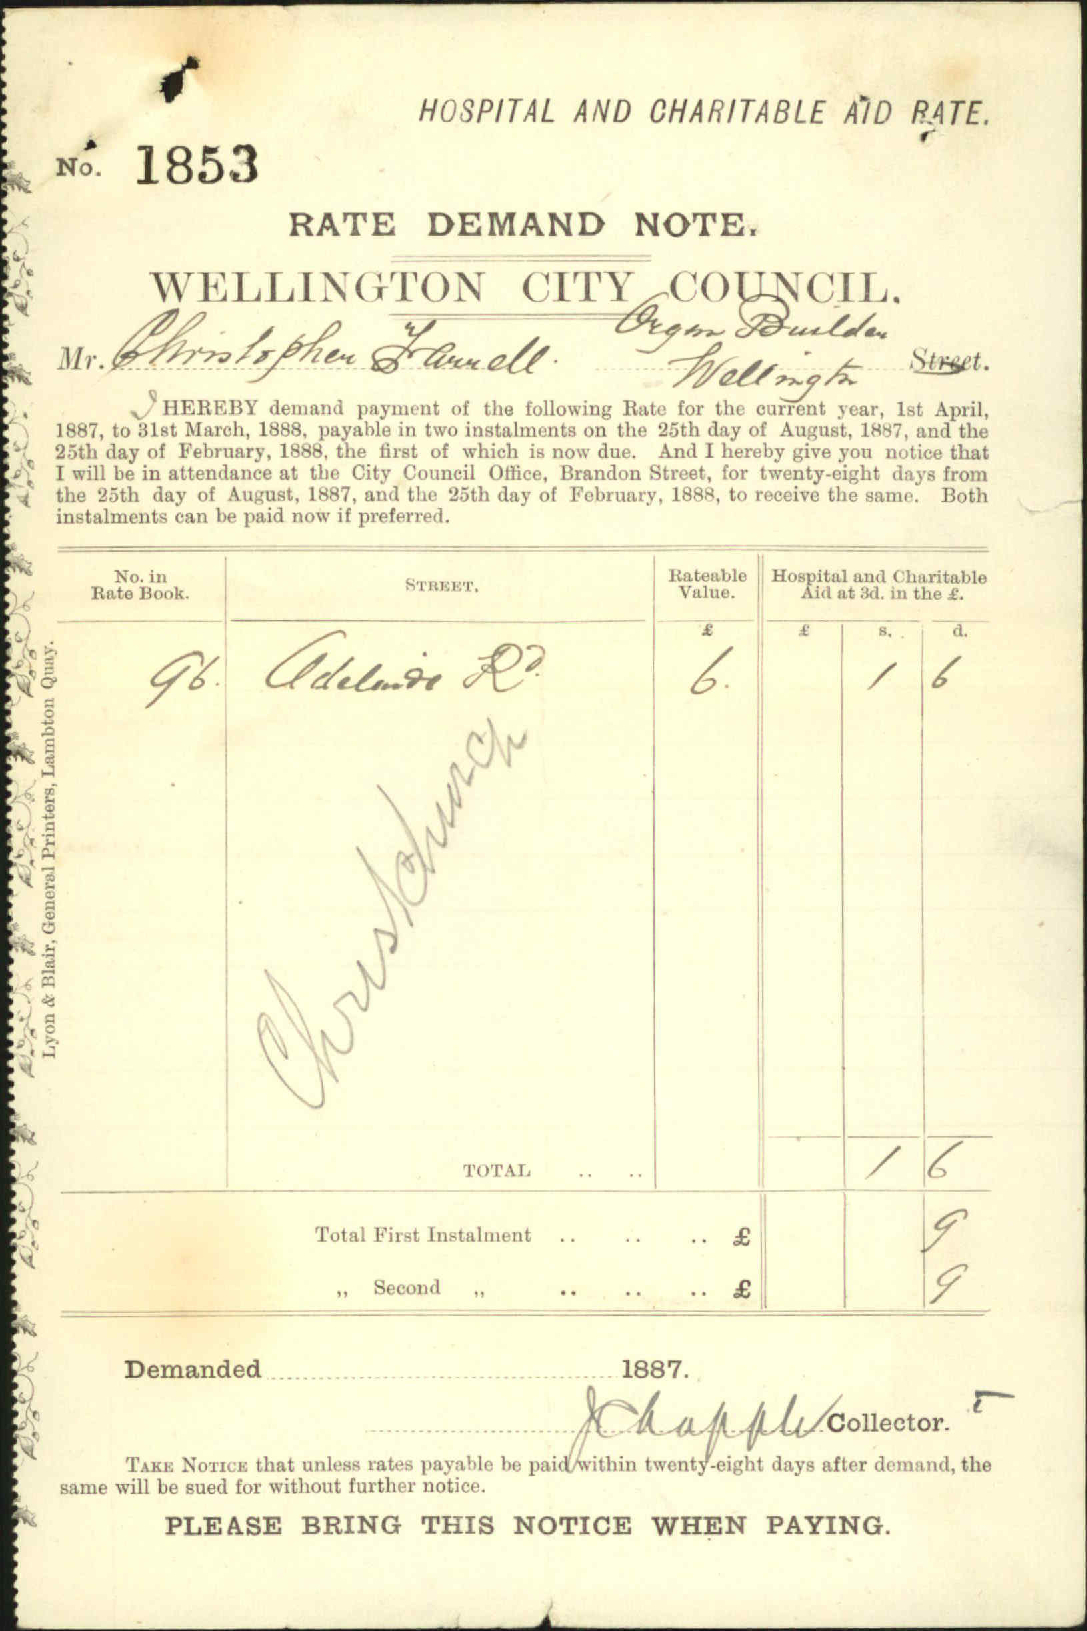 HOSPITAL AND CHARITABLE AID RATE.
No. 1853
RATE DEMAND NOTE.
WELLINGTON CITY COUNCIL.
Organ Builder
Mr. Christopher Farrell. Wellington Street.
I HEREBY demand payment of the following Rate for the current year, 1st April,
1887, to 31st March, 1888, payable in two instalments on the 25th day of August, 1887, and the
25th day of February, 1888, the first of which is now due. And I hereby give you notice that
I will be in attendance at the City Council Office, Brandon Street, for twenty-eight days from
the 25th day of August, 1887, and the 25th day of February, 1888, to receive the same. Both
instalments can be paid now if preferred.
No. in Rate Book. STREET. Rateable Value. Hospital and Charitable Aid at 3d. in the £.
£ £ s. d.
96. Adelaide Rd. 6. 1 6
Christchurch
TOTAL .. .. 1 6
Total First Instalment .. .. .. £ 9
„ Second „ .. .. .. £ 9
Demanded 1887.
J Chapple Collector.
TAKE NOTICE that unless rates payable be paid within twenty-eight days after demand, the
same will be sued for without further notice.
PLEASE BRING THIS NOTICE WHEN PAYING.
Lyon & Blair, General Printers, Lambton Quay.